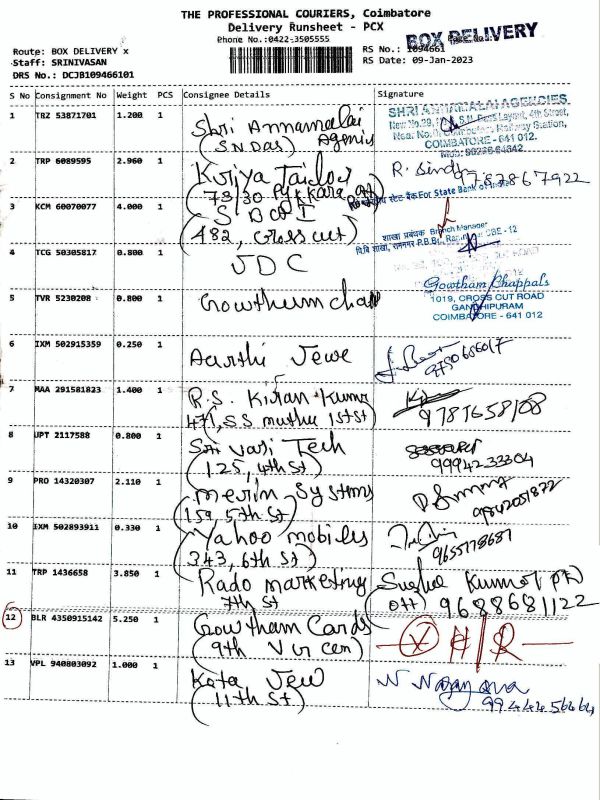 THE PROFESSIONAL COURIERS, Coimbatore
Delivery Runsheet - PCX
Phone No.:0422-3505555
BOX DELIVERY
Route: BOX DELIVERY x
Staff: SRINIVASAN
DRS No.: DCJB109466101
RS No.: 1094661
RS Date: 09-Jan-2023
S No Consignment No Weight PCS Consignee Details Signature
1 TRZ 53871701 1.200 1 Shri Annamalai
(SNDAS) Agencies
SHRI ANNAMALAI AGENCIES
Railway Station,
COIMBATORE - 641 012.
2 TRP 6089595 2.960 1 Kuriya Tailor
(73/30
R.
787867922
For State Bank of India
3 KCM 60070077 4.000 1 SBOI
(482, cross cut)
शाखा प्रबंधक Branch Manager
4 TCG 50305817 0.800 1 JDC
5 TVR 5230208 0.800 1 Gowtham chap
Gowtham Chappals
1019, CROSS CUT ROAD
GANDHIPURAM
COIMBATORE - 641 012
6 IXM 502915359 0.250 1 Aarthi Jewe
9790686017
7 MAA 291581823 1.400 1 R.S. Kiran Kumar
471, S.S muthu 1st St
9787658108
8 JPT 2117588 0.800 1 Sri Vari Tech
(125, 4th St)
9994233304
9 PRO 14320307 2.110 1 merim Systms
(159 5th St)
10 IXM 502893911 0.330 1 Yahoo mobiles
343, 6th St)
9655778687
11 TRP 1436658 3.850 1 Rado marketing
7th St
Kumar
off) 9688681122
12 BLR 4350915142 5.250 1 Gowtham Cards
(9th V ur cen)
13 VPL 940803092 1.000 1 Kota Jew
(11th St)
N Narayana
9944456464